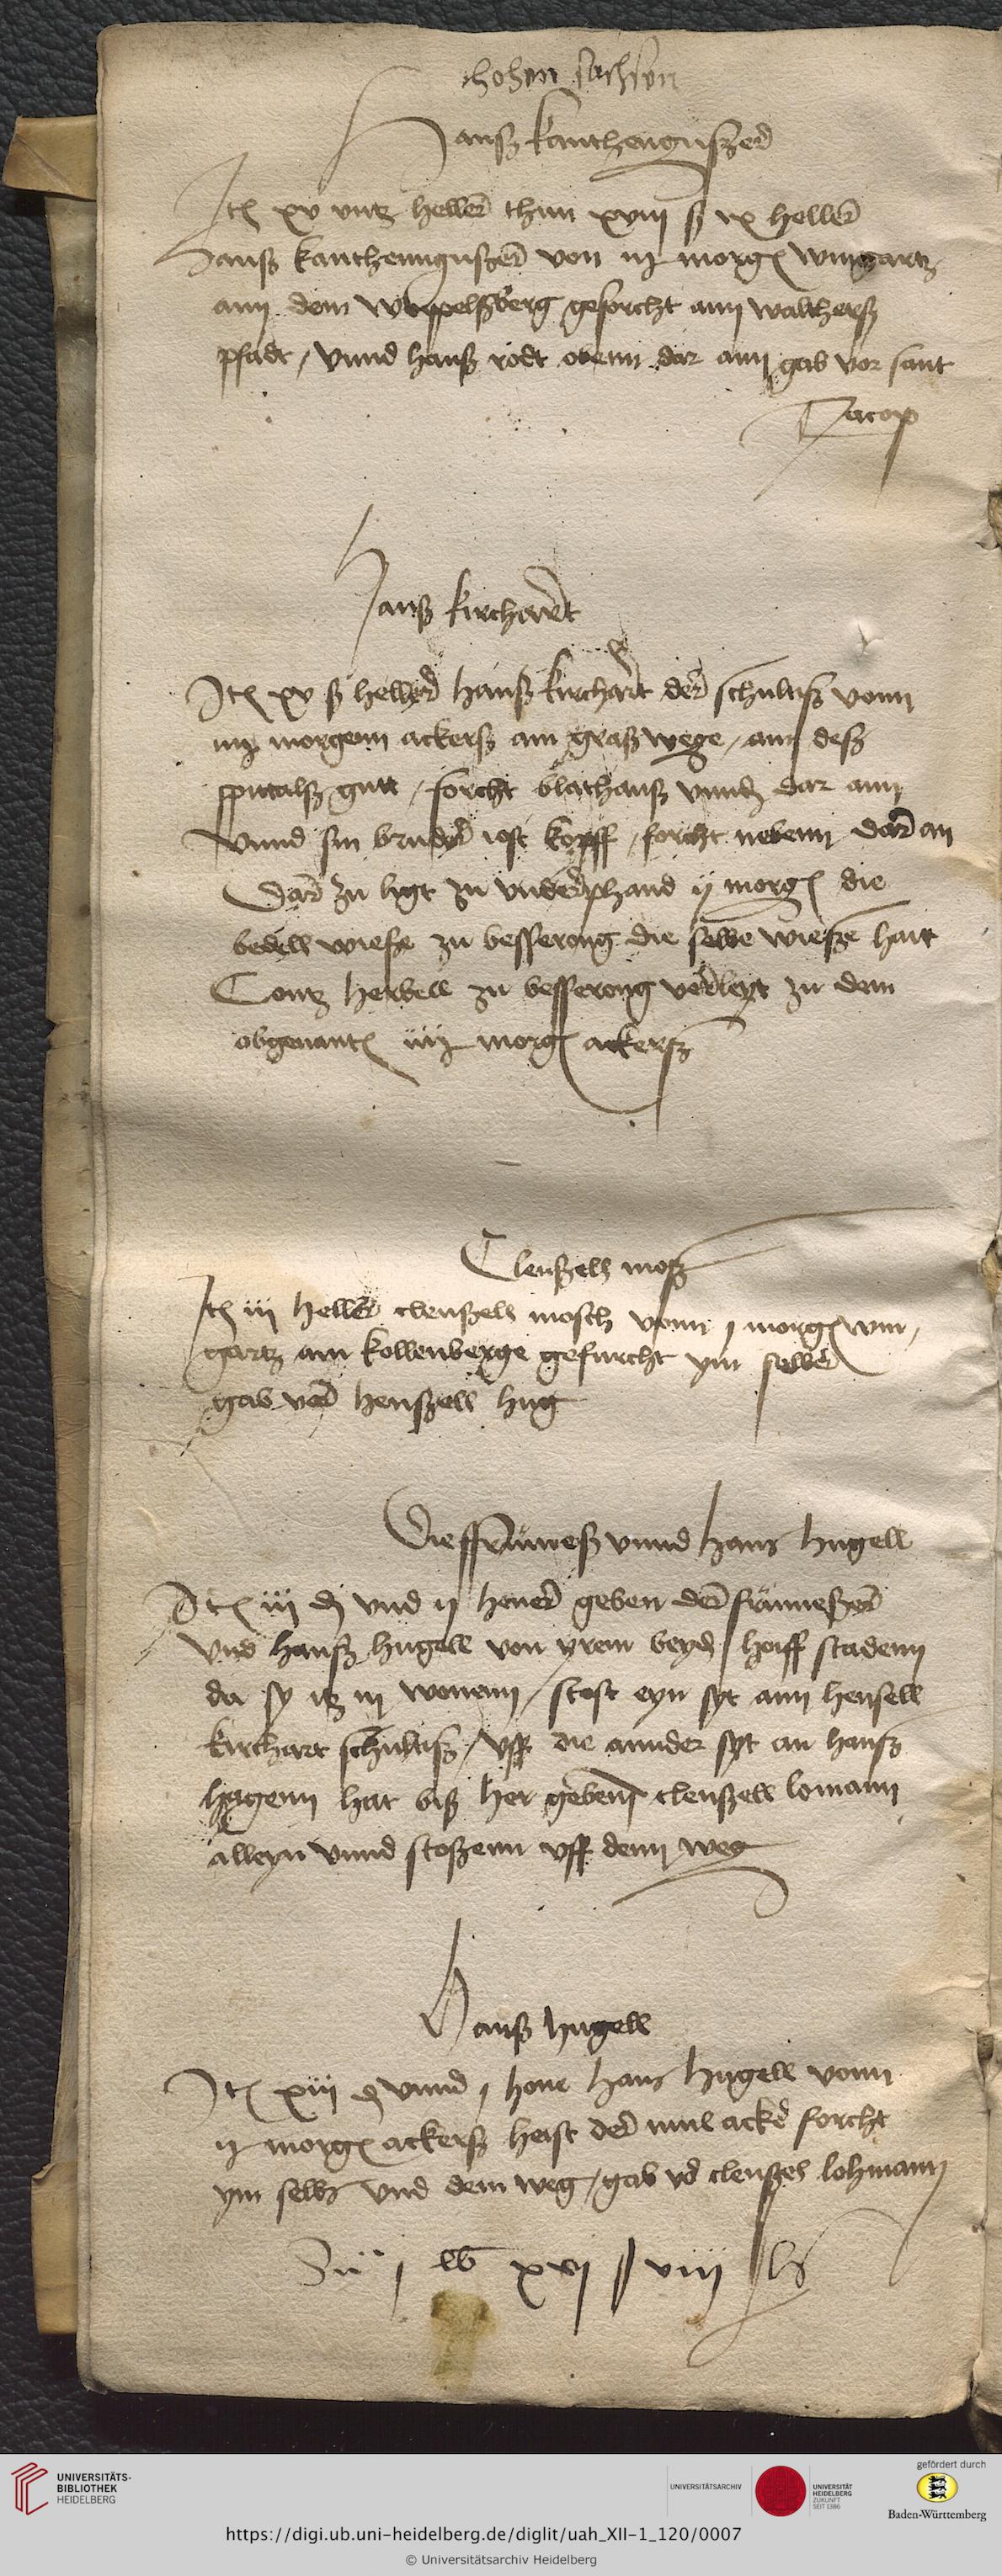 hohen sachsen
Hanß kanthengusszer
Jt xv untz heller thun xviii ß ix heller
Hanß kanthenngusszer von iij morg wingartz
ann dem wyppelßberg geforcht ann walthers
pfadt / unnd hanß rodt obenn dar ann gab vor sant
Jacop
Hanß kirchardt
Jt xv ß heller hanß kirchart der schultiß vonn
iiij morgenn ackerß am graß wege / ann deß
spittalß gutt / forcht unnd dar ann
unnd sin bruder iost kopff / forcht nebenn dar an
Dar zu ligt zu underphand ij morg die
bedell wiese zu besserong die selbe wiesze hait
Contz herbell zu besserong verleyt zu dem
obgenant iiij morg ackerß
Clenßell moß
Jt iii heller clenßell mosch vonn j morg win /
gartz am kollenberge gefurcht ym selber
gab vor henßell hug
Die unnd hans hugell
Jt iii und ij geben der
und hanß hugell von yrem beyd hoiff stadenn
da sy itz in wonenn / stost eyn syt ann hensell
kirchart schultiß / uff die annder syt an hanß
hagenn hat biß her gebenn clenßell lomann
alleyn unnd stoßenn uff denn weg
Hanß hugell
Jt xiii unnd j hans hugell vonn
ij morg ackerß heist der mul acker forcht
ym selbs und dem weg / gab vor clenßel lohmann
Su j lb xvj ß viij hl
UNIVERSITÄTS-
BIBLIOTHEK
HEIDELBERG
UNIVERSITÄTSARCHIV
UNIVERSITÄT
HEIDELBERG
ZUKUNFT
SEIT 1386
gefördert durch
Baden-Württemberg
https://digi.ub.uni-heidelberg.de/diglit/uah_XII-1_120/0007
© Universitätsarchiv Heidelberg